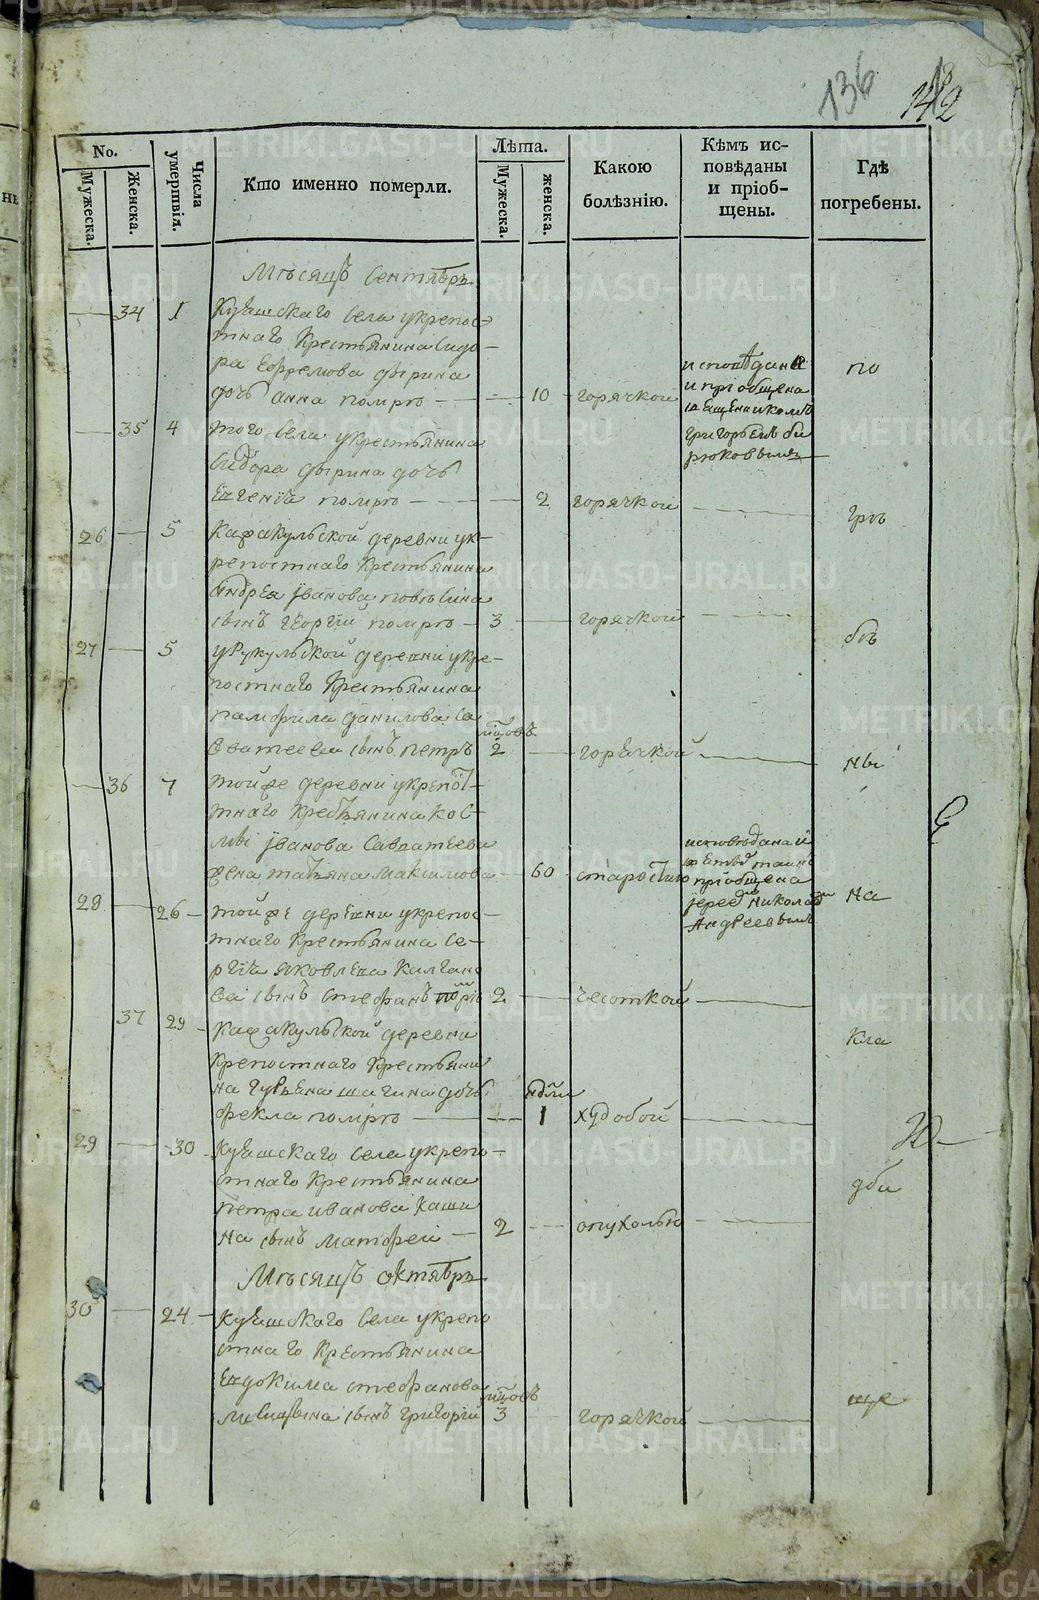 136
142
No.
Мужеска.
Женска.
Числа умертвія.
Кто именно померли.
Лѣта.
Мужеска.
женска.
Какою болѣзнію.
Кѣмъ ис-
повѣданы
и пріоб-
щены.
Гдѣ погребены.
Мѣсяцъ Сентябрь
34 1 Куяшскаго села укрепос
тнаго Крестьянина Сидо-
ра Ефремова дырина
дочь анна помре 10 горячкой
исповѣдана
и пріобщена
священникомъ
григорьемъ би
рюковымъ
по
35 4 того села укрестьянина
Сидора дырина дочь
Евгенія помре 2 горячкой
гре
26 5 Каракульской деревни ук-
репостнаго Крестьянина
андрея іванова
сынъ георгій помре 3 горячкой
бе
27 5 деревни укре-
постнаго Крестьянина
памфила данилова са
ватеева сынъ петръ мцовъ 2 горячкой
ны
36 7 тойже деревни укрепос-
тнаго Крестьянина кос-
мы іванова Савватеева
жена татьяна максимова 60 старостію
исповѣдана и
пріобщена
іереемъ николаемъ
Андреевымъ
На
28 26 тойже деревни укрепос-
тнаго Крестьянина Се-
ргія яковлева Калган
ва сынъ стефанъ помре 2 чесоткой
37 29 Каракульской деревни
крепостнаго Крестьяни
на гурьяна шагина дочь
фекла помре ндли 1 худобой
кла
29 30 Куяшскаго села укрепо-
стнаго Крестьянина
петра иванова каши
на сынъ матфей 2 опухолью
дби
Мѣсяцъ октябрь
30 24 Куяшскаго села укрепо
стнаго Крестьянина
Евдокима стефанова
сынъ григорій мцовъ 3 горячкой
ще
METRIKI.GASO-URAL.RU